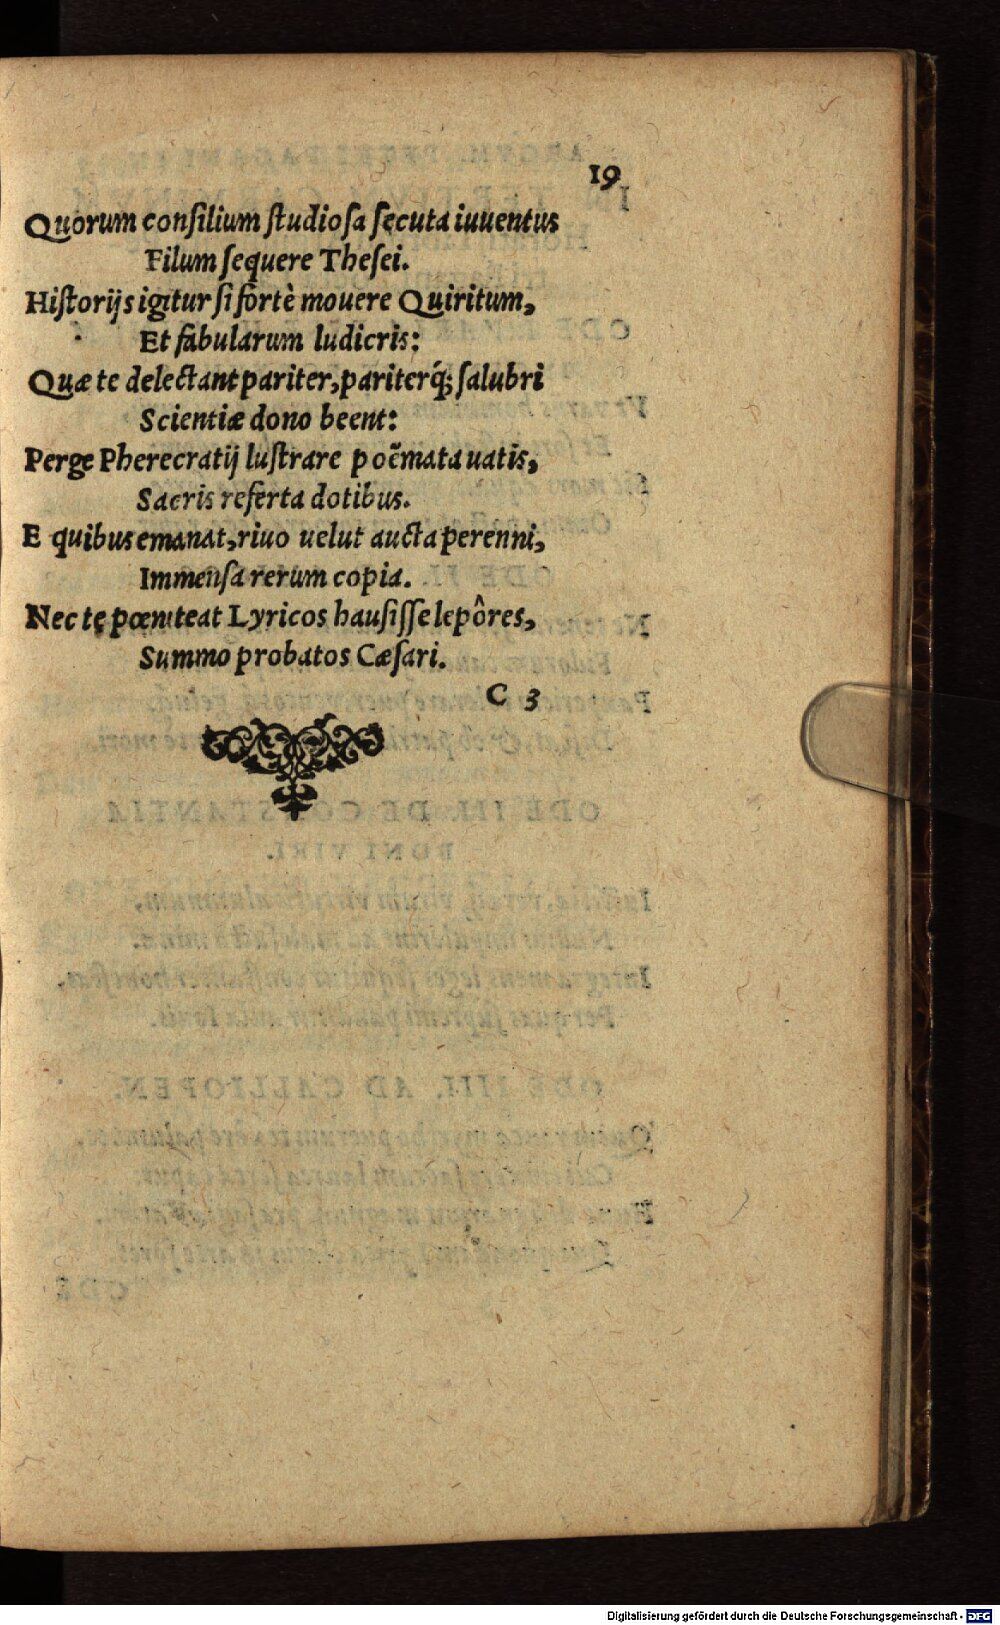 19
Quorum consilium studiosa secuta iuuentus
Filum sequere Thesei.
Historijs igitur si fortè mouere Quiritum,
Et fabularum ludicris:
Quæ te delectant pariter, pariterq́; salubri
Scientiæ dono beent:
Perge Pherecratij lustrare poëmata uatis,
Sacris referta dotibus.
E quibus emanat, riuo uelut aucta perenni,
Immensa rerum copia.
Nec te pœniteat Lyricos hausisse lepôres,
Summo probatos Cæsari.
C 3
Digitalisierung gefördert durch die Deutsche Forschungsgemeinschaft - DFG